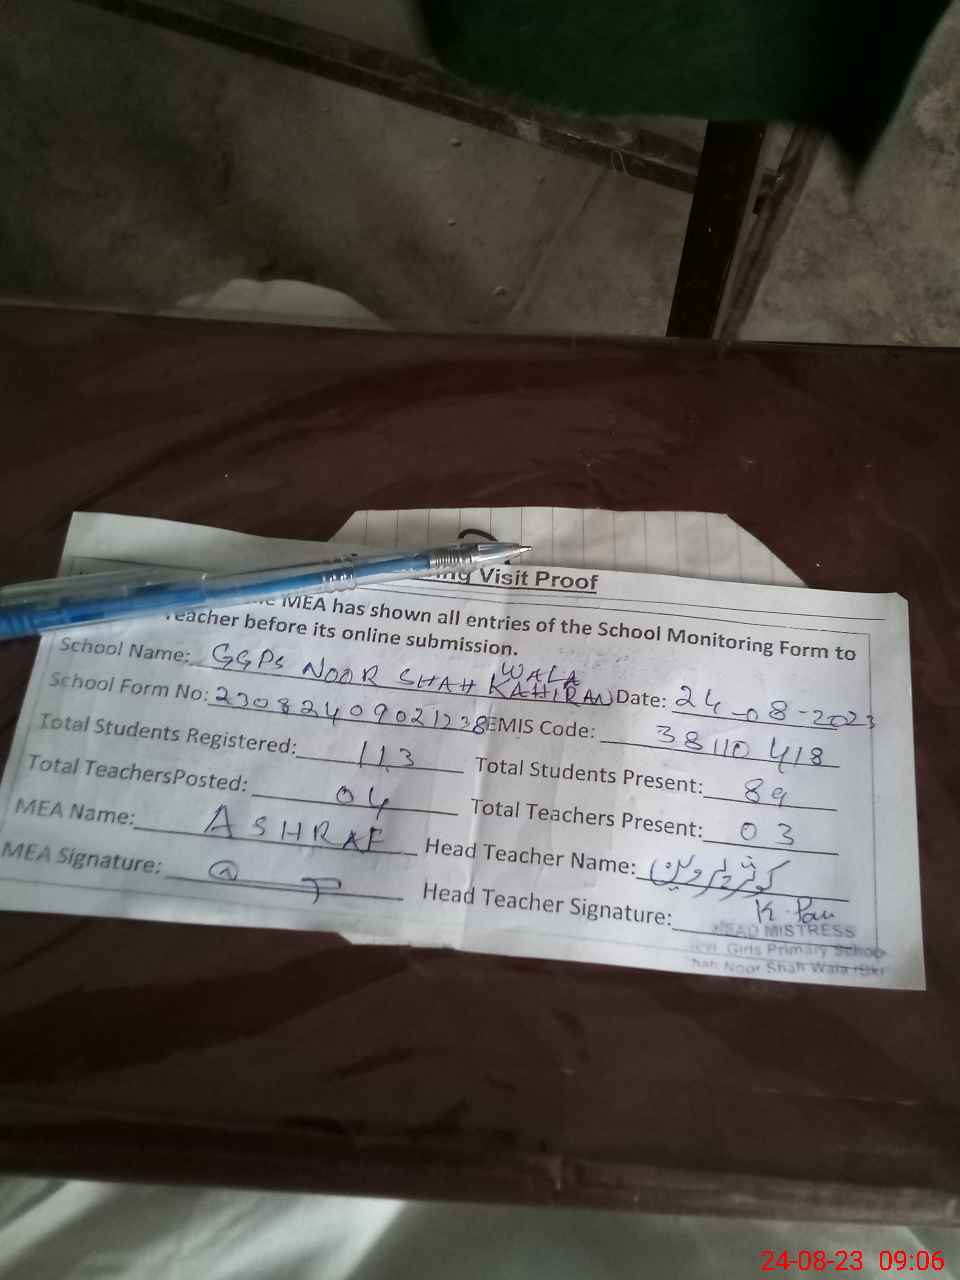 Visit Proof
MEA has shown all entries of the School Monitoring Form to
Teacher before its online submission.
School Name: GGPS NOOR SHAH WALA KAHIRAN Date: 24-08-2023
School Form No: 23082409021238 EMIS Code: 38110418
Total Students Registered: 113 Total Students Present: 89
Total TeachersPosted: 04 Total Teachers Present: 03
MEA Name: ASHRAF Head Teacher Name: کوثر پروین
MEA Signature: Head Teacher Signature:
HEAD MISTRESS
Girls Primary School
Noor Shah Wala
24-08-23 09:06